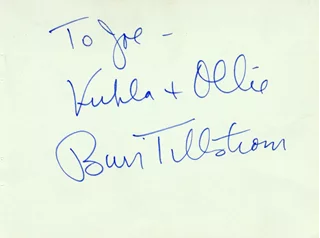 To Joe -
Kukla + Ollie
Burr Tillstrom